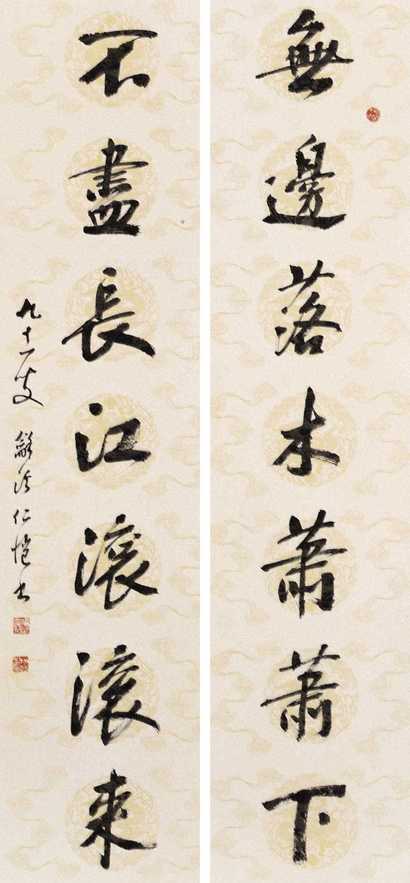 無邊落木蕭蕭下
不盡長江滾滾來
九十一叟 龢溪仁愷书